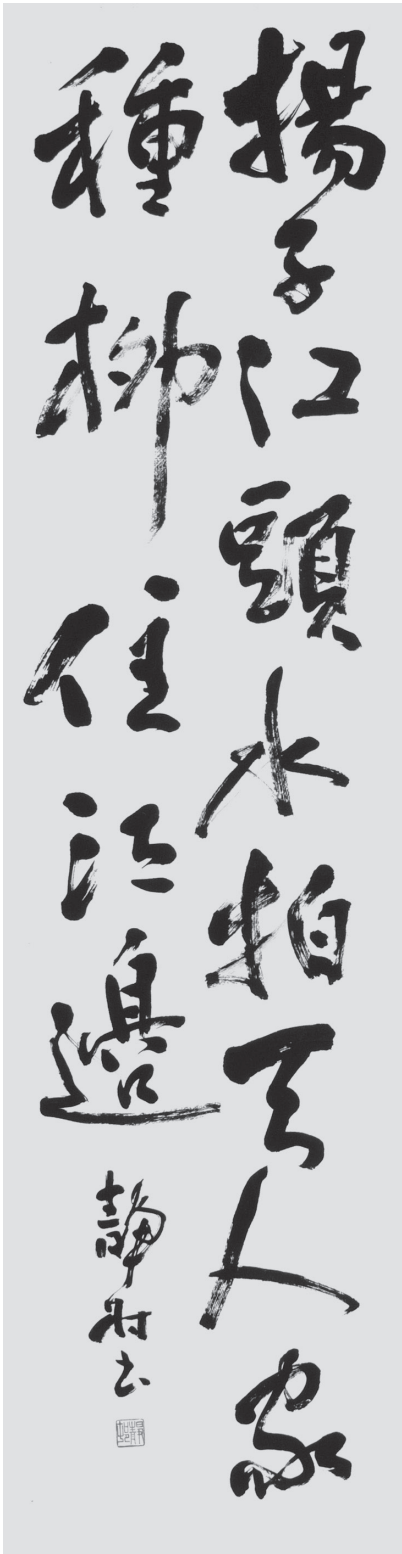 揚子江頭水拍天人家
種柳住江邊
靜村書